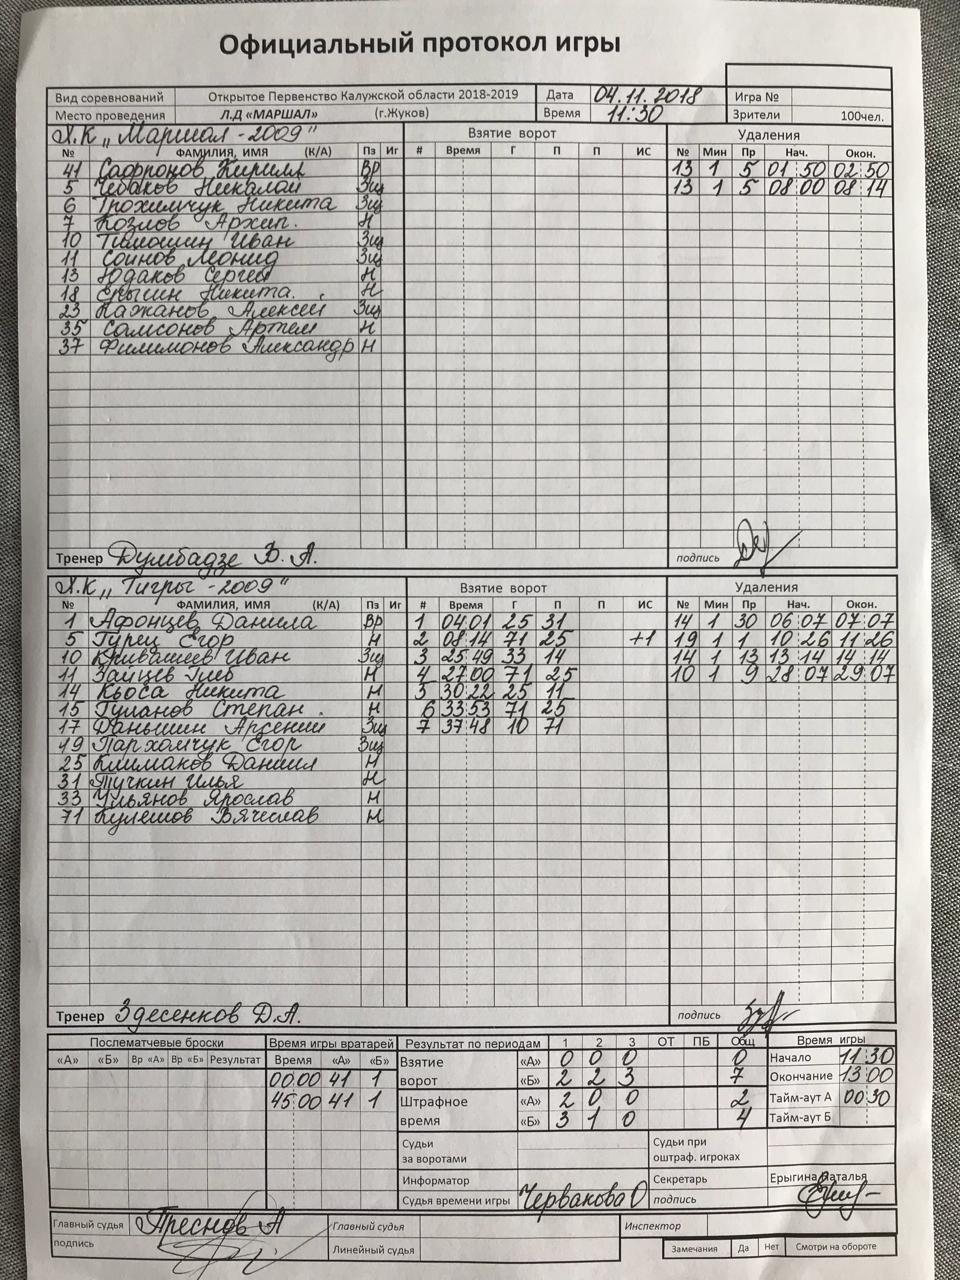 Официальный протокол игры
Вид соревнований Открытое Первенство Калужской области 2018-2019 Дата 04.11.2018 Игра №
Место проведения Л.Д «МАРШАЛ» (г.Жуков) Время 11:30 Зрители 100чел.
Х.К „Маршал -2009" Взятие ворот Удаления
№ ФАМИЛИЯ, ИМЯ (К/А) Пз Иг # Время Г П П ИС № Мин Пр Нач. Окон.
41 Сафронов Кирилл Вр 13 1 5 01 50 02 50
5 Чебаков Николай Зщ 13 1 5 08 00 08 14
6 Трохимчук Никита Зщ
7 Козлов Архип. Н
10 Тимошин Иван Зщ
11 Соинов Леонид Зщ
13 Юдаков Сергей Н
18 Никита. Н
23 Кажанов Алексей Зщ
35 Самсонов Артем Н
37 Филимонов Александр Н
Тренер Думбадзе В. А. подпись
Х.К „Тигры -2009" Взятие ворот Удаления
№ ФАМИЛИЯ, ИМЯ (К/А) Пз Иг # Время Г П П ИС № Мин Пр Нач. Окон.
1 Афонцев Данила Вр 1 04 01 25 31 14 1 30 06 07 07 07
5 Гурец Егор Н 2 08 14 71 25 +1 19 1 1 10 26 11 26
10 Кривашеев Иван Зщ 3 25 49 33 14 14 1 13 13 14 14 14
11 Зайцев Глеб Н 4 27 00 71 25 10 1 9 28 07 29 07
14 Кьоса Никита Н 5 30 22 25 11
15 Гуланов Степан. Н 6 33 53 71 25
17 Даньшин Арсений Зщ 7 37 48 10 71
19 Пархомчук Егор Зщ
25 Климаков Даниил Н
31 Тучкин Илья Н
33 Ульянов Ярослав Н
71 Кулешов Вячеслав Н
Тренер Здесенков Д.А. подпись
Послематчевые броски Время игры вратарей Результат по периодам 1 2 3 ОТ ПБ Общ Время игры
«А» «Б» Вр «А» Вр «Б» Результат Время «А» «Б» Взятие «А» 0 0 0 0 Начало 11 30
00 00 41 1 ворот «Б» 2 2 3 7 Окончание 13 00
45 00 41 1 Штрафное «А» 2 0 0 2 Тайм-аут А 00 30
время «Б» 3 1 0 4 Тайм-аут Б
Судьи за воротами Судьи при оштраф. игроках
Информатор Секретарь Ерыгина Наталья
Судья времени игры Червакова О подпись
Главный судья Преснов А Главный судья Инспектор
подпись Линейный судья Замечания Да Нет Смотри на обороте